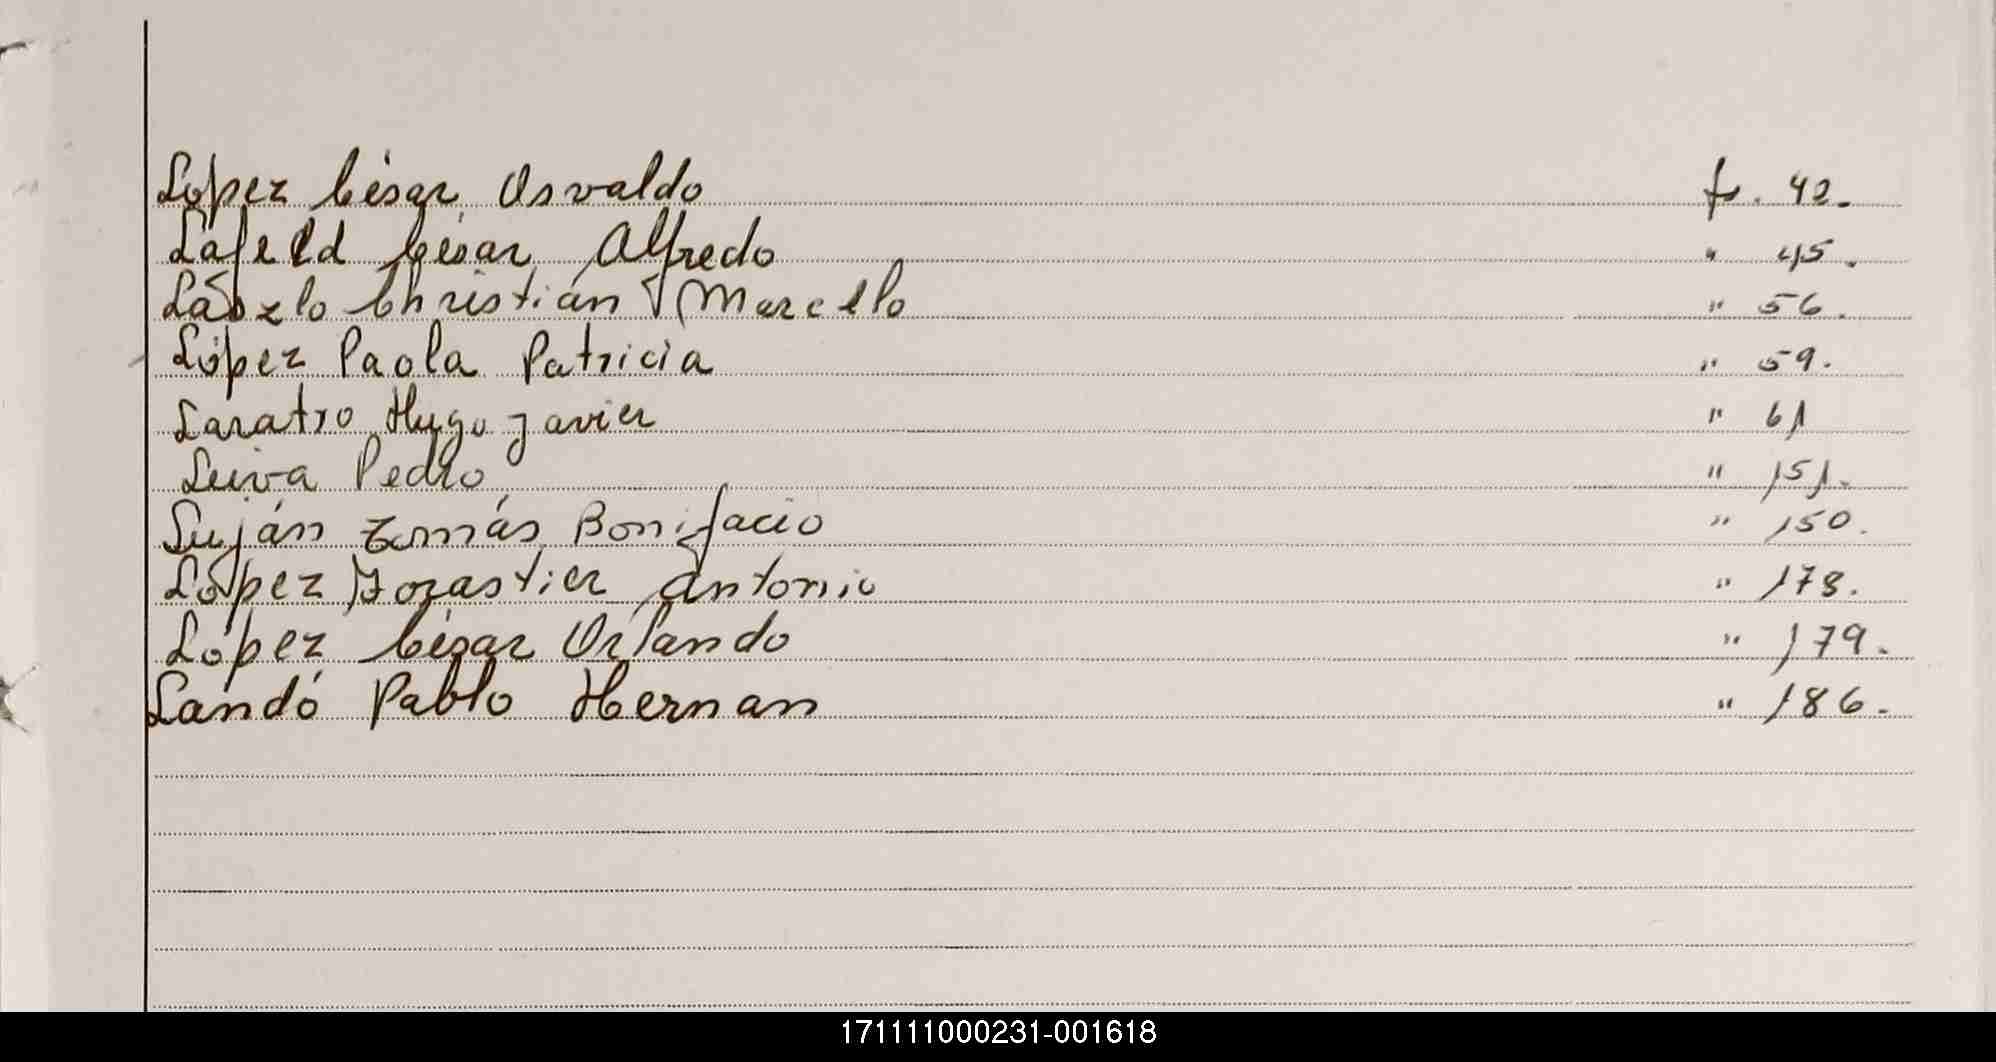 López César Osvaldo fº. 42.
Lafeld César Alfredo " 45.
László Christián Marcelo " 56.
López Paola Patricia " 59.
Laratro Hugo Javier " 61
Leiva Pedro " 151.
Luján Tomás Bonifacio " 150.
López Antonio " 178.
López César Orlando " 179.
Landó Pablo Hernan " 186.
171111000231-001618